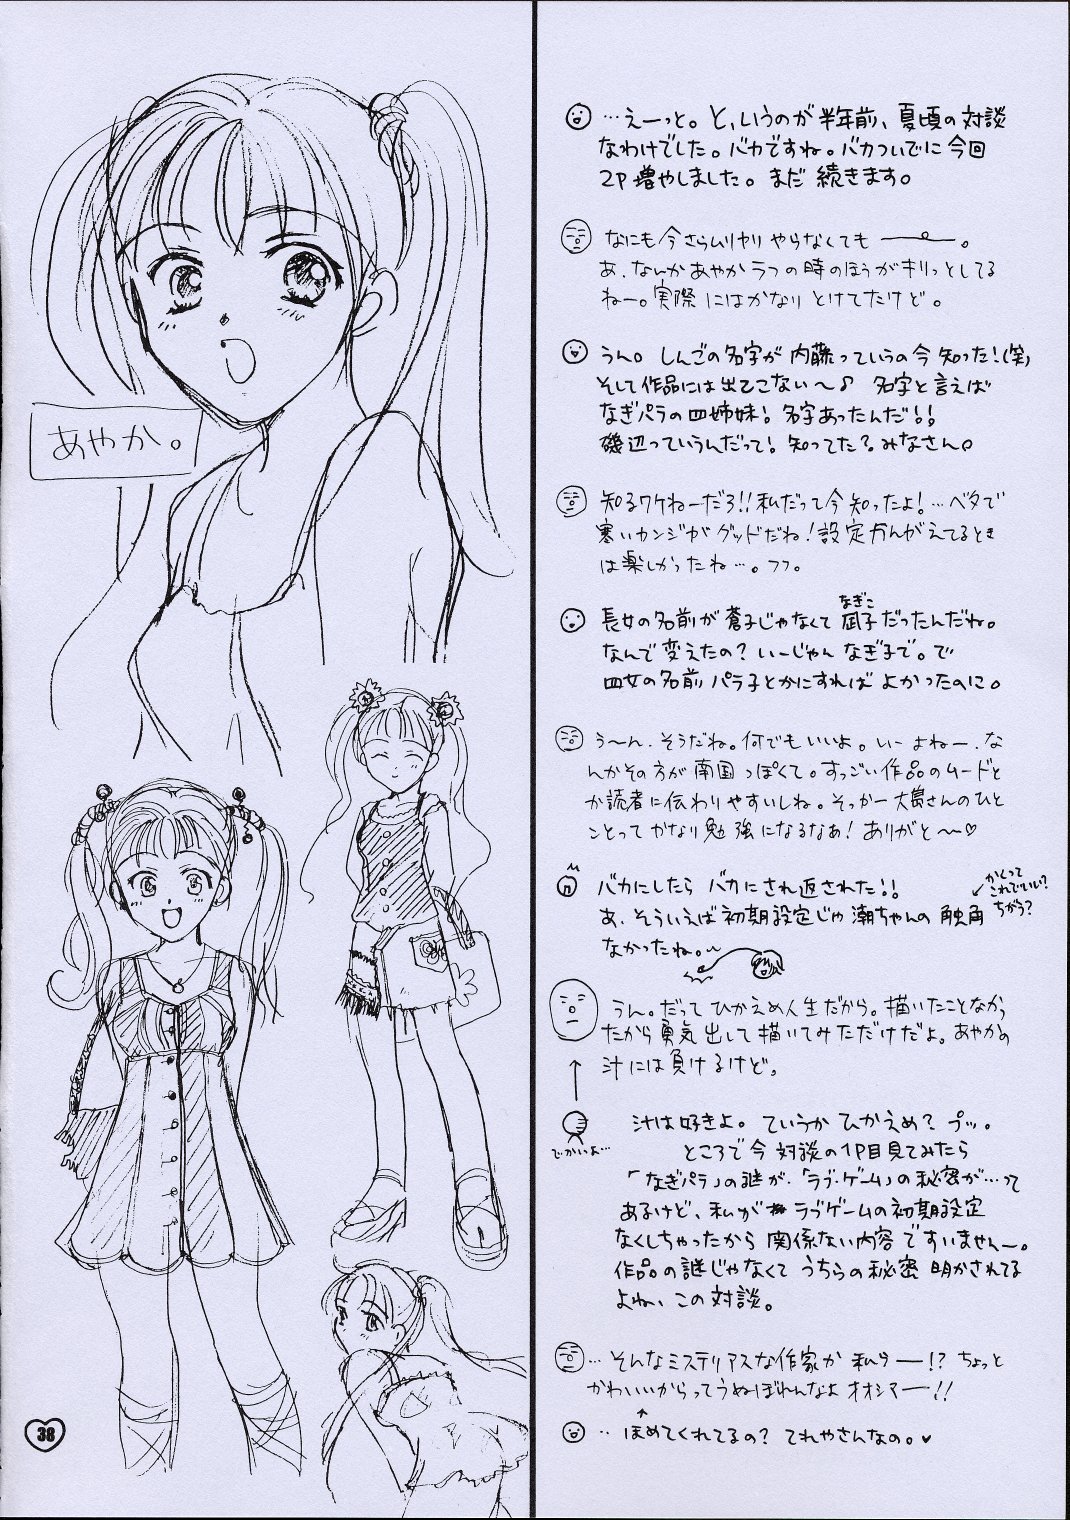 あやか。
…えーっと。と、いうのが半年前、夏頃の対談
なわけでした。バカですね。バカついでに今回
2P増やしました。まだ続きます。
なにも今さらムリヤリやらなくても———。
あ、なんかあやかラフの時のほうがキリっとしてる
ねー。実際にはかなりとけてたけど。
うん。しんごの名字が内藤っていうの今知った!(笑)
そして作品には出てこない〜♪ 名字と言えば
なぎパラの四姉妹!名字あったんだ!!
磯辺っていうんだって!知ってた?みなさん。
知るワケねーだろ!!私だって今知ったよ!…ベタで
寒いカンジがグッドだね!設定かんがえてるとき
は楽しかったね…。フフ。
なぎこ
長女の名前が蒼子じゃなくて凪子だったんだね。
なんで変えたの?いーじゃんなぎ子で。で
四女の名前パラ子とかにすればよかったのに。
う〜ん、そうだね。何でもいいよ。いーよねー、な
んかその方が南国っぽくて。すっごい作品のムードと
か読者に伝わりやすいしね。そっかー大島さんのひと
ことってかなり勉強になるなあ!ありがと〜♡
バカにしたらバカにされ返された!!
あ、そういえば初期設定じゃ潮ちゃんの触角
なかったね。
かくって
これでいい?
ちがう?
うん。だってひかえめ人生だから。描いたことなかっ
たから勇気出して描いてみただけだよ。あやかの
汁には負けるけど。
でかいよ…
汁は好きよ。ていうかひかえめ?プッ。
ところで今対談の1P目見てみたら
「なぎパラ」の謎が、「ラブ・ゲーム」の秘密が…って
あるけど、私がラブゲームの初期設定
なくしちゃったから関係ない内容ですいませんー。
作品の謎じゃなくてうちらの秘密明かされてる
よね、この対談。
…そんなミステリアスな作家か私らー!?ちょっと
かわいいからってうぬぼれんなよオオシマー!!
…ほめてくれてるの?てれやさんなの。♥
38